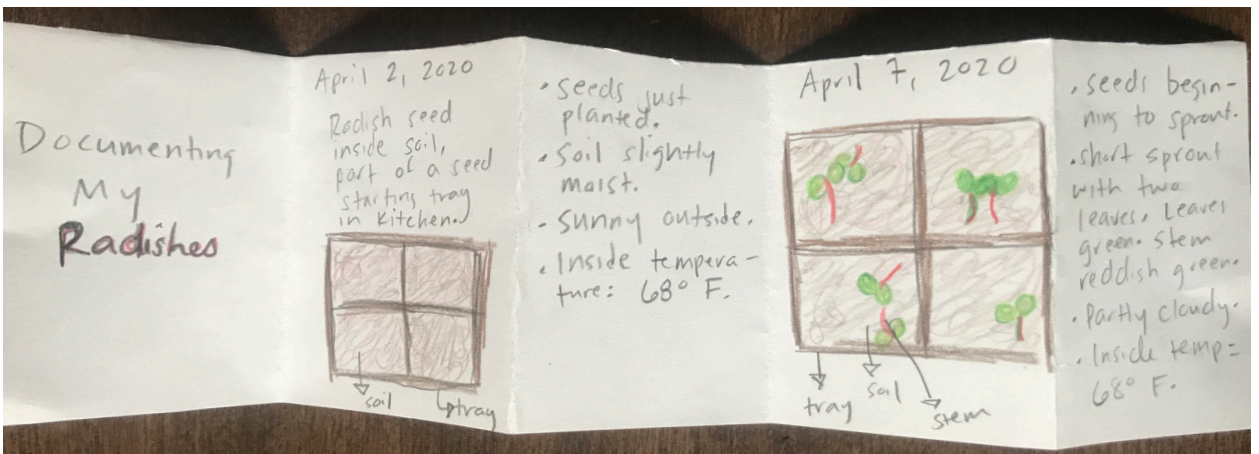 Documenting
My
Radishes
April 2, 2020
Radish seed
inside soil,
part of a seed
starting tray
in kitchen.
soil
tray
• seeds just
planted.
• Soil slightly
moist.
- sunny outside.
• Inside tempera-
ture: 68° F.
April 7, 2020
tray
soil
stem
• seeds begin-
ning to sprout.
• short sprout
with two
leaves. Leaves
green. Stem
reddish green.
• Partly cloudy.
• Inside temp=
68° F.